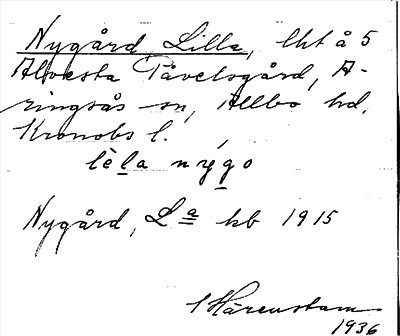 Nygård Lilla, lht å 5
Alvesta Påvelsgård, A-
ringsås sn, Allbo hd,
Kronobs l.
lèla nygo
Nygård, La hb 1915
Härenstam
1936